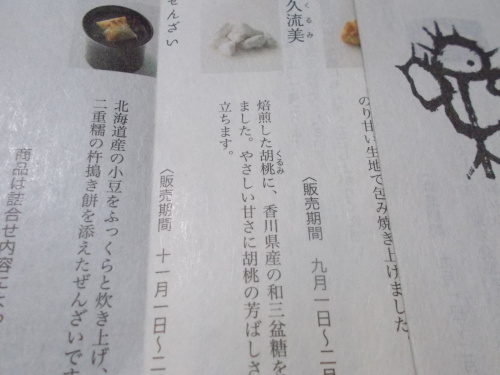 のり甘い生地で包み焼き上げました。
〈販売期間 九月一日〜二日
久流美
くるみ
焙煎した胡桃に、香川県産の和三盆糖を
くるみ
ました。やさしい甘さに胡桃の芳ばしさ
立ちます。
〈販売期間 十一月一日〜二
ぜんざい
北海道産の小豆をふっくらと炊き上げ、
二重糯の杵搗き餅を添えたぜんざいです
商品は詰合せ内容によっ